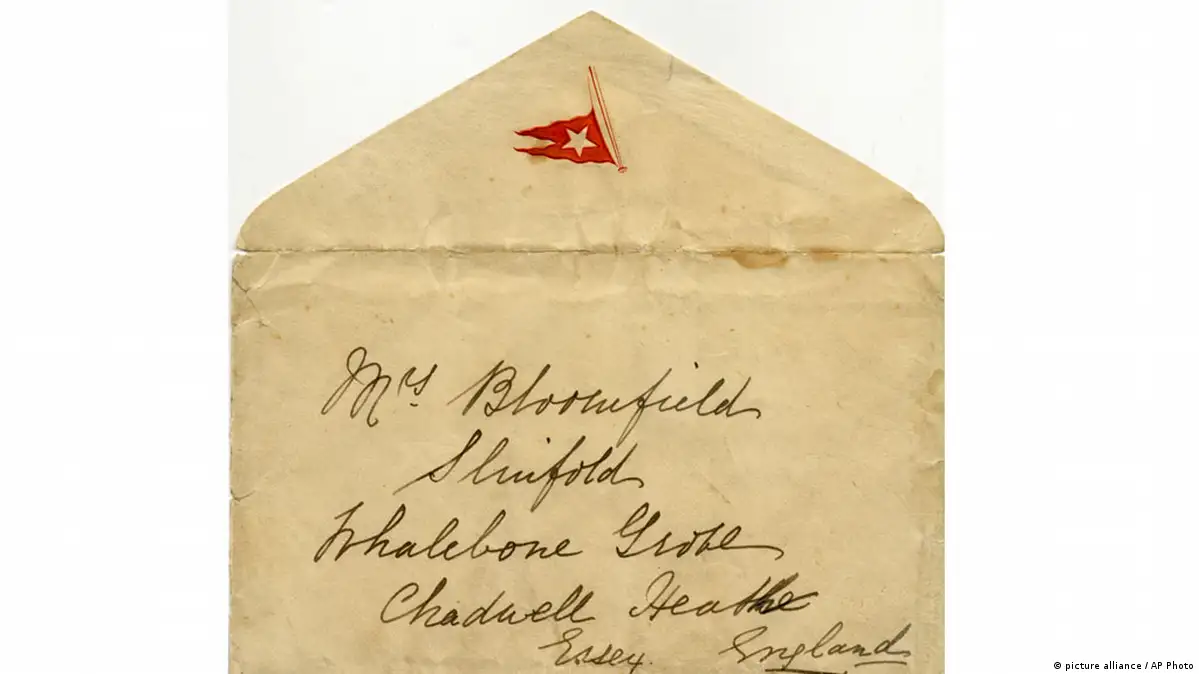 Mrs. Bloomfield
Slinfold
Whalebone Grove
Chadwell Heathe
Essex. England
© picture alliance / AP Photo